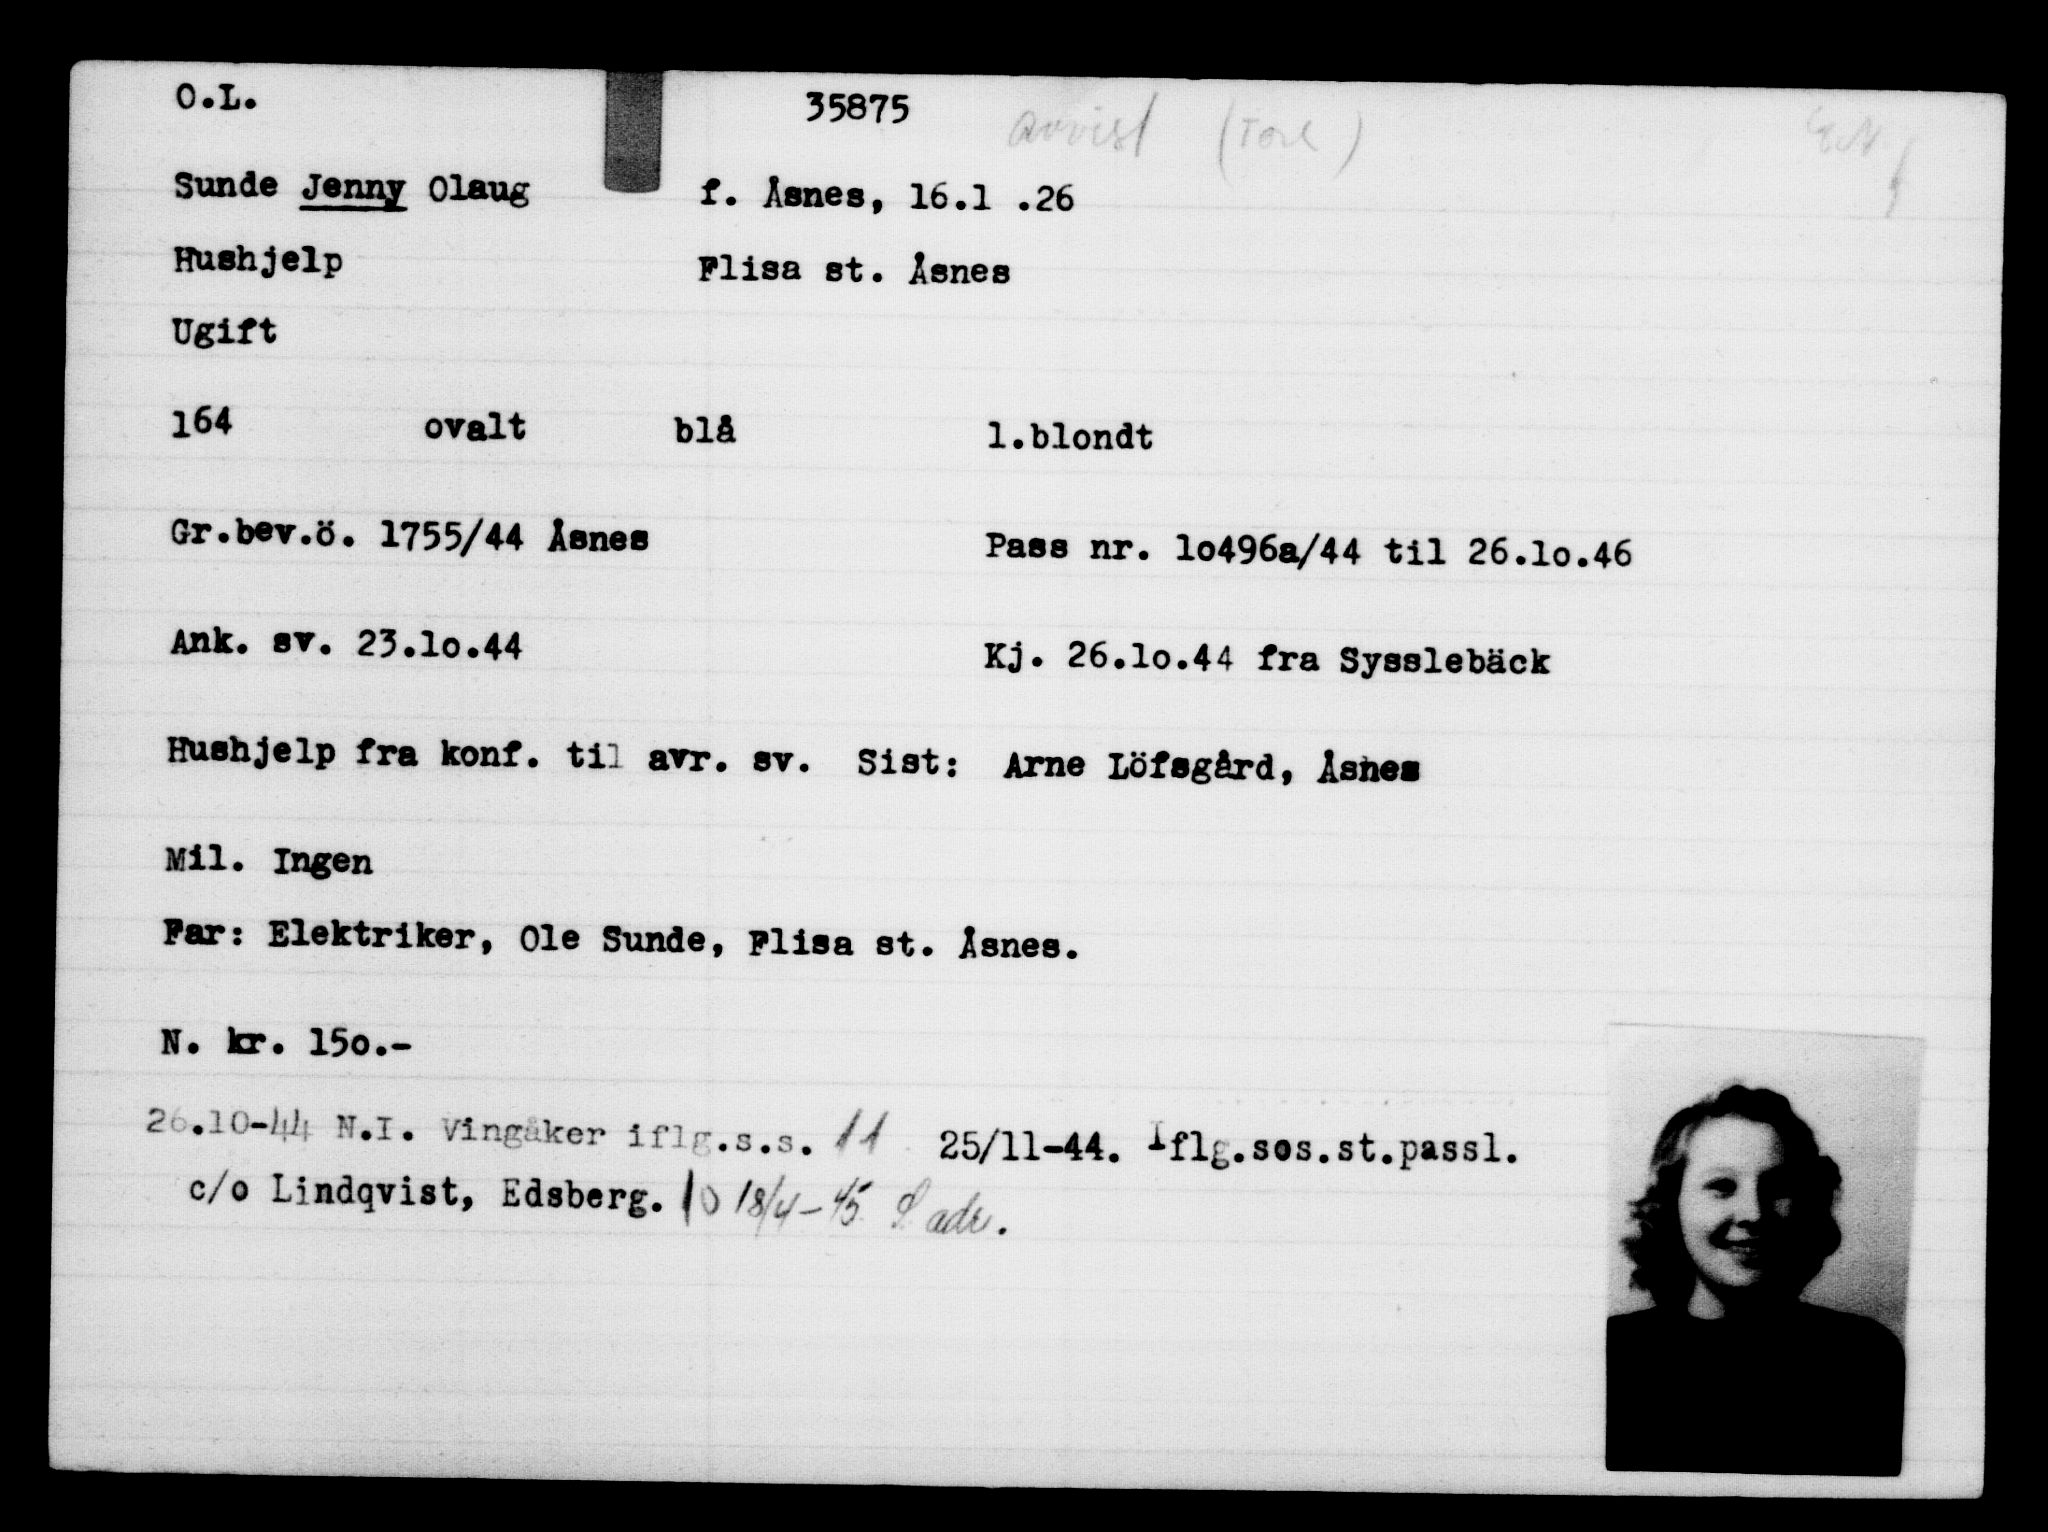 O.L. 35875 avvist (Tore)
Sunde Jenny Olaug f. Åsnes, 16.1 .26
Hushjelp Flisa st. Åsnes
Ugift
164 ovalt blå l.blondt
Gr.bev.ö. 1755/44 Åsnes Pass nr. lo496a/44 til 26.lo.46
Ank. sv. 23.lo.44 Kj. 26.lo.44 fra Sysslebäck
Hushjelp fra konf. til avr. sv. Sist: Arne Löfsgård, Åsnes
Mil. Ingen
Far: Elektriker, Ole Sunde, Flisa st. Åsnes.
N. kr. 15o.-
26.10-44 N.I. Vingåker iflg.s.s. 11 25/11-44. Iflg.sos.st.passl.
c/o Lindqvist, Edsberg. 10 18/4-45 adr.